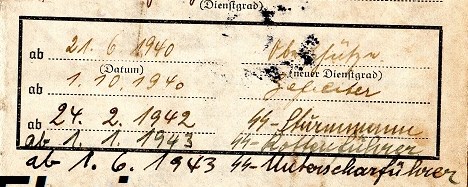 (Dienstgrad)
ab 21. 6 1940 Oberschütze
(Datum) (neuer Dienstgrad)
ab 1. 10. 1940 Gefreiter
ab 24. 2. 1942 SS-Sturmmann
ab 1. 1. 1943 SS-Rottenführer
ab 1. 6. 1943 SS-Unterscharführer